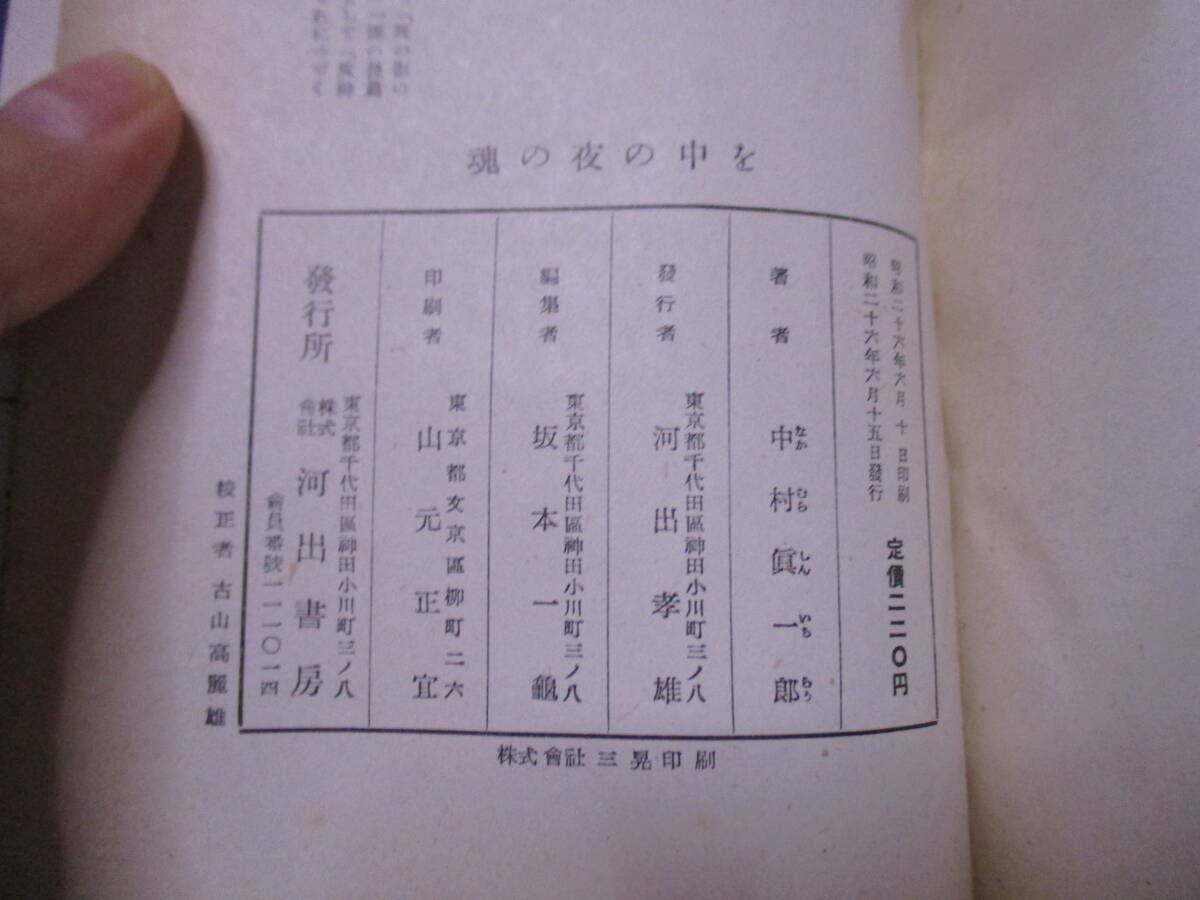 魂の夜の中を
昭和二十六年六月 十 日印刷
昭和二十六年六月十五日發行
定價二二〇円
著者
中村眞一郎
なか むら しん いち らう
發行者
東京都千代田區神田小川町三ノ八
河出孝雄
編集者
東京都千代田區神田小川町三ノ八
坂本一龜
印刷者
東京都文京區柳町二六
山元正宜
發行所
東京都千代田區神田小川町三ノ八
株式會社 河出書房
會員番號一一一〇一四
校正者 古山高麗雄
株式會社 三晃印刷